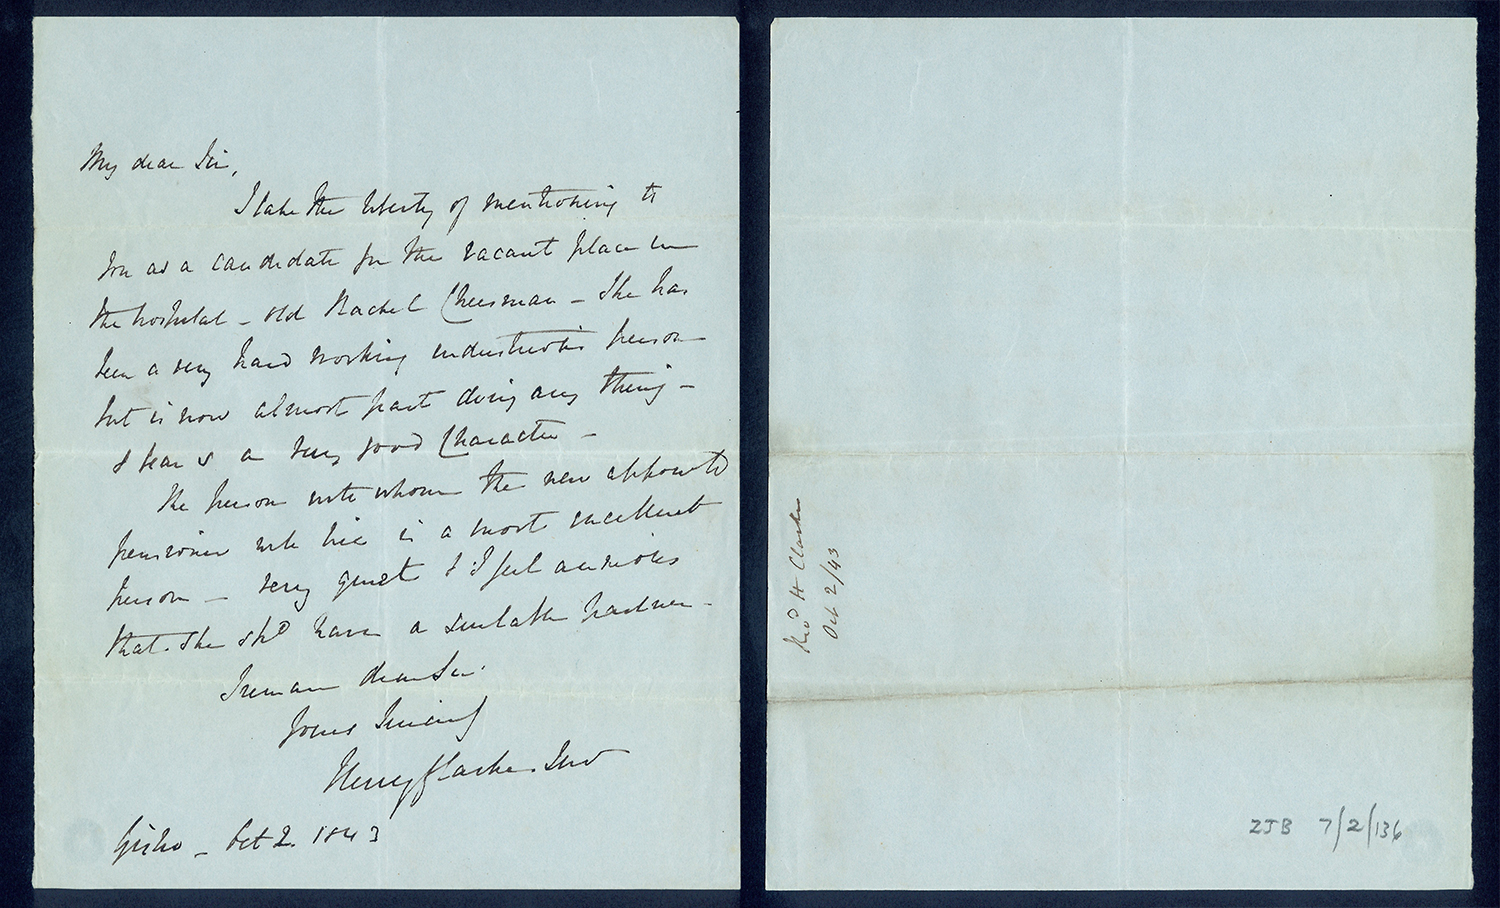 My dear Sir,
I take the liberty of mentioning to
you as a candidate for the vacant place in
the hospital - old Rachel Cheesman - She has
been a very hard working industrious person
but is now almost past doing any thing -
& bears a very good Character -
The person with whom the new appointed
pensioner will live is a most excellent
person - very quiet & I feel anxious
that she shd have a suitable partner -
I remain dear Sir
Yours sincerely
Henry Clarke
Gisbo - Oct 2. 1843
Revd H Clarke
Oct 2/43
ZJB 7/2/136